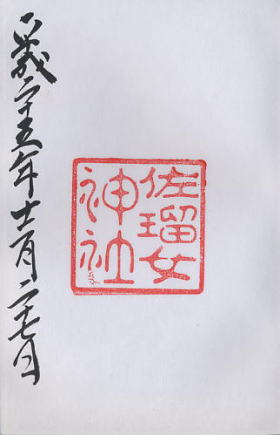 佐瑠女
神社
平成二十五年十二月二十七日